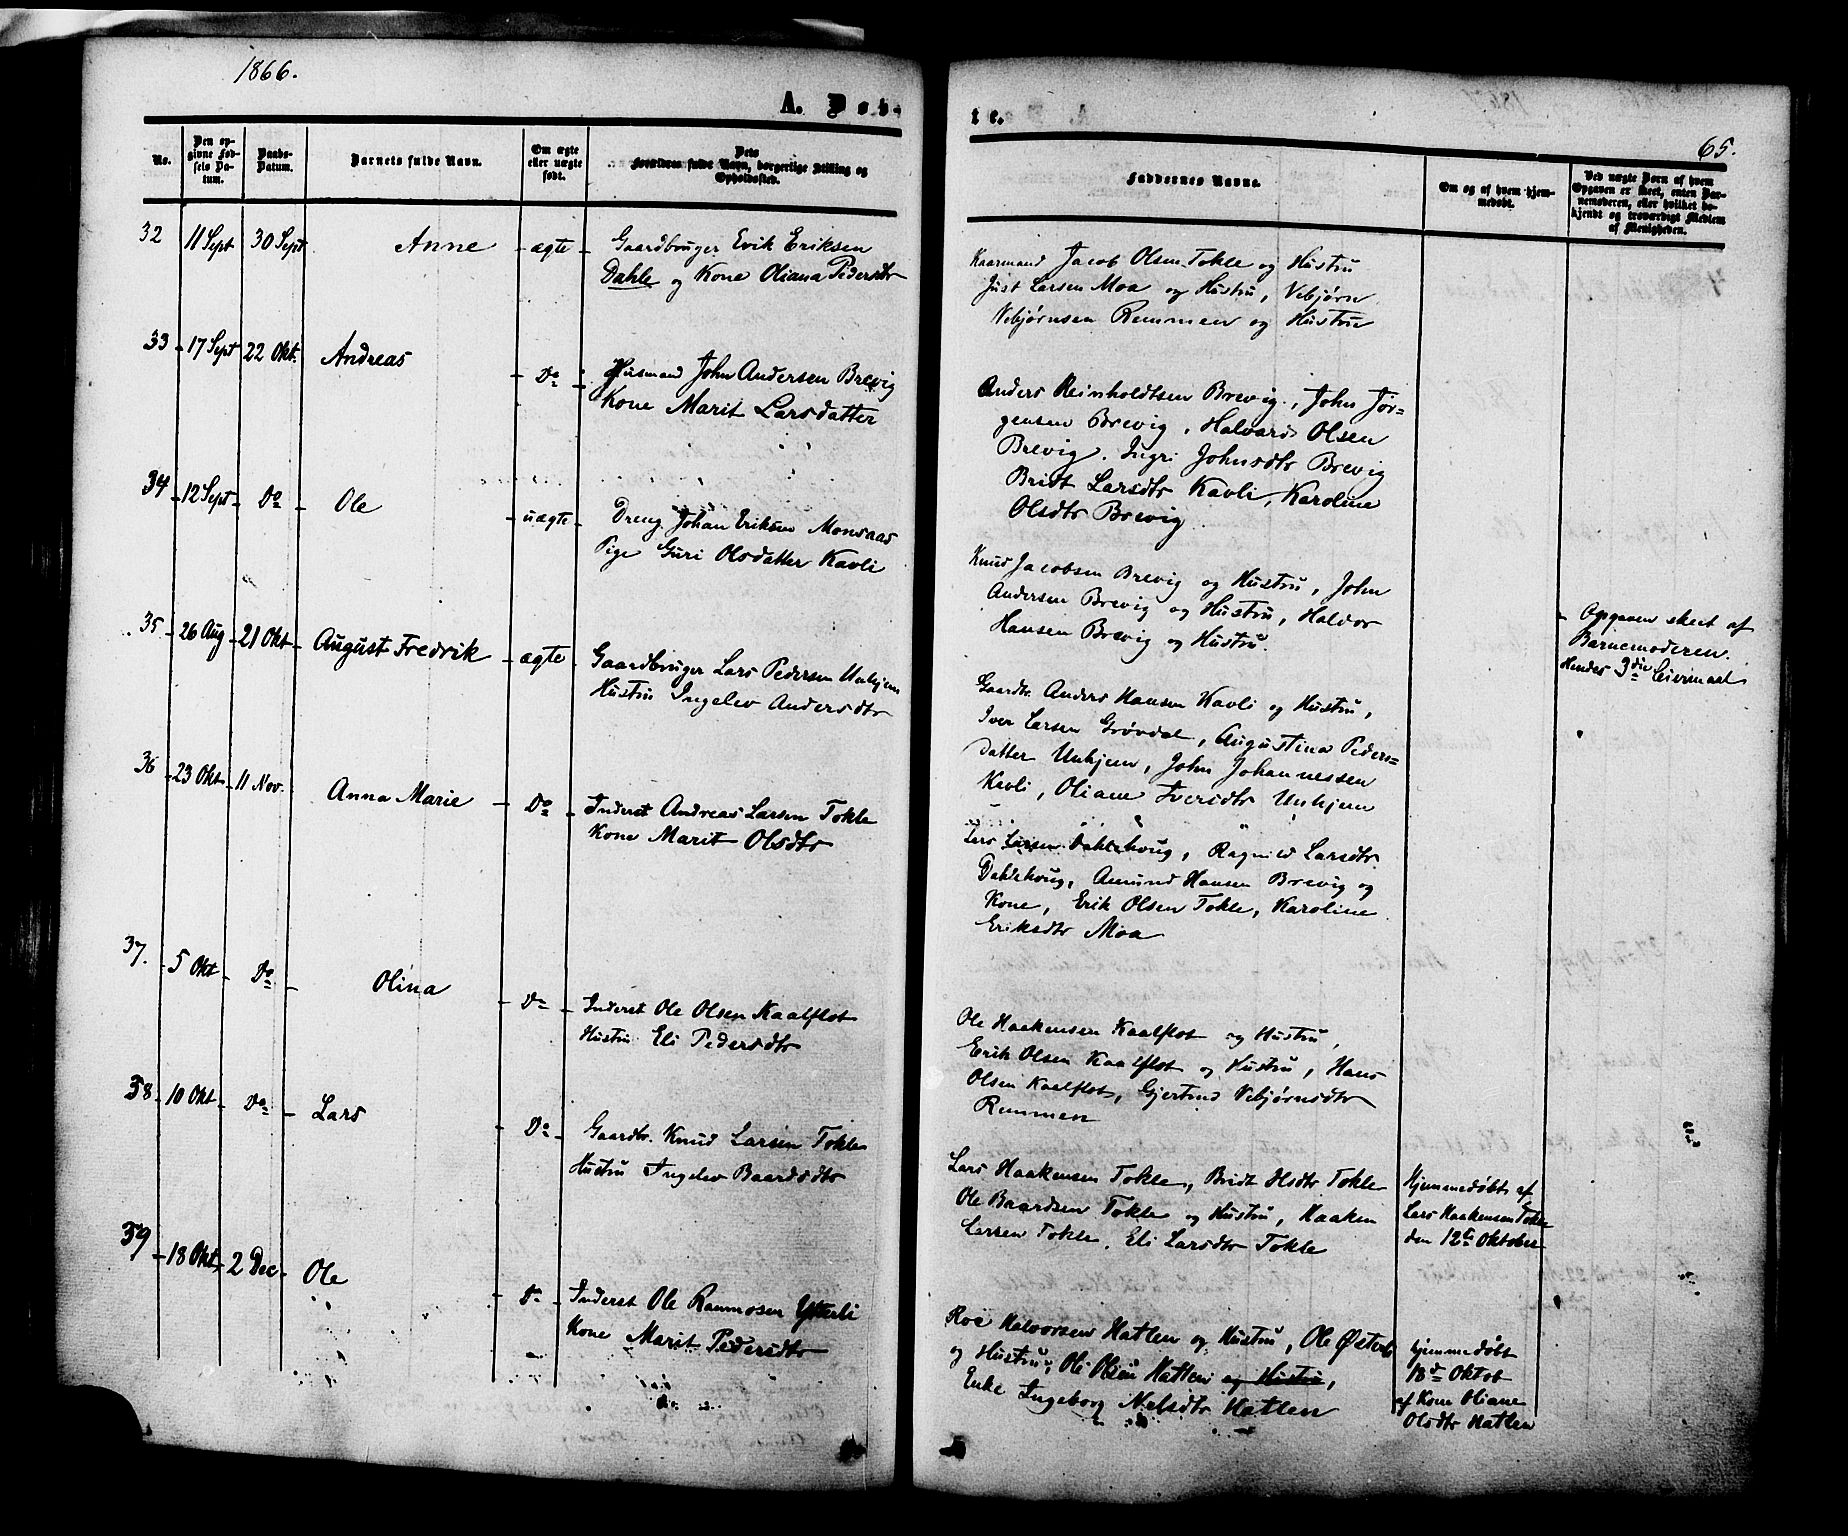 1866.
A. Døb-
No.
Den op-
givne Fød-
sels Da-
tum.
Daabs-
Datum.
Barnets fulde Navn.
Om ægte
eller uægte
født.
Dets
Forældres fulde Navn, borgerlige Stilling og
Opholdssted.
32 11 Sept 30 Sept Anne ægte Gaardbruger Erik Eriksen
Dahle og Kone Oliana Pedersdtr
33 17 Sept 22 Okt. Andreas Do Husmand John Andersen Brevig
Kone Marit Larsdatter
34 12 Sept Do Ole uægte Dreng Johan Eriksen Monsaas
Pige Guri Olsdatter Kavli
35 26 Aug 21 Okt August Fredrik ægte Gaardbruger Lars Pedersen Unhjem
Hustru Ingelev Andersdtr
36 23 Okt 11 Nov. Anna Marie Do Inderst Andreas Larsen Tokle
Kone Marit Olsdtr
37. 5 Okt Do Olina Do Inderst Ole Olsen Kaalflot
Hustru Eli Pedersdtr
38 10 Okt Do Lars Do Gaardbr. Knud Larsen Tokle
Hustru Ingelev Baardsdtr
39 18 Okt 2 Dec Ole Do Inderst Ole Rasmosen Ytterli
Kone Marit Pedersdtr
te.
65.
Faddernes Navne.
Om og af hvem hjem-
medøbt.
Ved uægte Børn af hvem
Opgaven er skeet, enten Bar-
nemoderen, eller hvilket be-
kjendt og troværdigt Medlem
af Menigheden.
Kaarmand Jacob Olsen Tokle og Hustru
Just Larsen Moa og Hustru, Vebjørn
Vebjørnsen Remmen og Hustru
Anders Reinholdtsen Brevig, John Jør-
gensen Brevig, Halvard Olsen
Brevig. Ingri Johnsdtr Brevig
Bridt Larsdtr Kavli, Karoline
Olsdtr Brevig
Knud Jacobsen Brevig og Hustru, John
Andersen Brevig og Hustru, Haldor
Hansen Brevig og Hustru.
Opgaven skeet af
Barnemoderen.
Hendes 3die Leiermaal
Gaardbr. Anders Hansen Kavli og Hustru,
Iver Larsen Grøvdal, Augustina Peders-
datter Unhjem, John Johannessen
Kavli, Oliane Iversdtr Unhjem
Lars Larsen Dahlehoug, Ragnild Larsdtr
Dahlehoug, Amund Hansen Brevig og
Kone, Erik Olsen Tokle, Karoline
Eriksdtr Moa
Ole Haakensen Kaalflot og Hustru,
Erik Olsen Kaalflot og Hustru, Hans
Olsen Kaalflot, Gjertrud Vebjørnsdtr
Remmen
Lars Haakensen Tokle, Bridt Tokle
Ole Baardsen Tokle og Hustru, Haaken
Larsen Tokle, Eli Larsdtr Tokle
Hjemmedøbt af
Lars Haakensen Tokle
den 12te Oktober
Roe Halvorsen Hatlen og Hustru, Ole
og Hustru, Ole Olsen Hatlen og Hustru,
Enke Ingeborg Nelsdtr Hatlen
hjemmedøbt
18d Oktob
af Kone Oliane
Olsdtr Hatlen